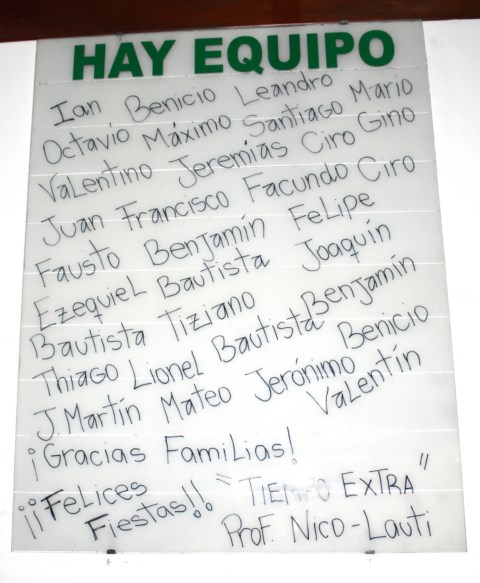 HAY EQUIPO
Ian Benicio Leandro
Octavio Máximo Santiago Mario
Valentino Jeremías Ciro Gino
Juan Francisco Facundo Ciro
Fausto Benjamín Felipe
Ezequiel Bautista Joaquín
Bautista Tiziano Benjamín
Thiago Lionel Bautista Benicio
J. Martín Mateo Jerónimo Valentín
¡Gracias Familias!
¡¡Felices Fiestas!!
"TIEMPO EXTRA"
Prof. Nico-Lauti